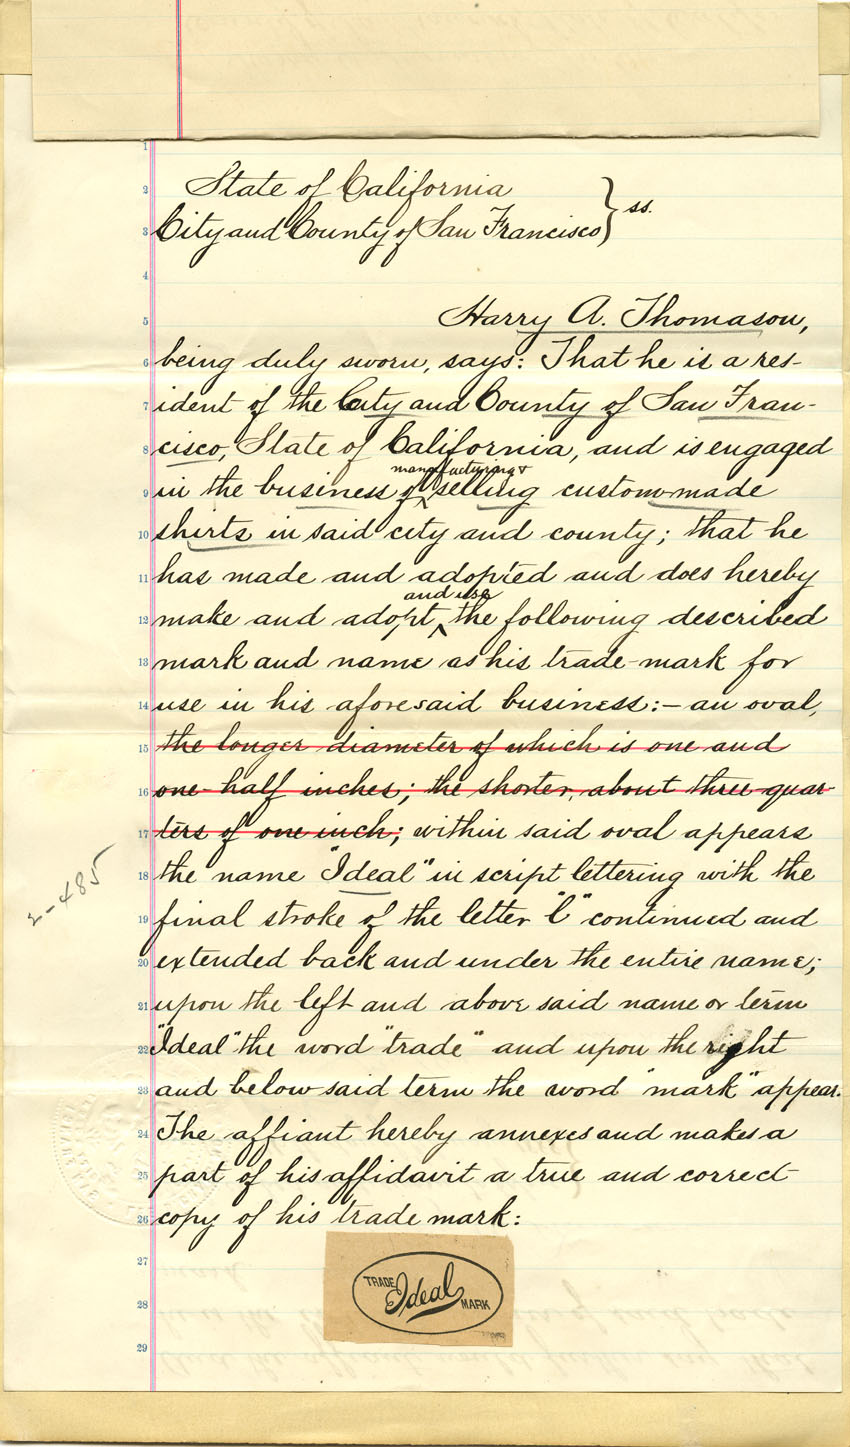 1
2 State of California
3 City and County of San Francisco } ss.
4
5 Harry A. Thomason,
6 being duly sworn, says: That he is a res-
7 ident of the City and County of San Fran-
8 cisco, State of California, and is engaged
manufacturing &
9 in the business of ^ selling custom-made
10 shirts in said city and county; that he
11 has made and adopted and does hereby
and use
12 make and adopt ^ the following described
13 mark and name as his trade-mark for
14 use in his aforesaid business:- an oval,
15 the longer diameter of which is one and
16 one-half inches; the shorter, about three quar-
17 ters of one inch; within said oval appears
18 the name "Ideal" in script lettering with the
19 final stroke of the letter "l" continued and
20 extended back and under the entire name;
21 upon the left and above said name or term
22 "Ideal" the word "trade" and upon the right
23 and below said term the word "mark" appear.
24 The affiant hereby annexes and makes a
25 part of his affidavit a true and correct
26 copy of his trade mark:
27
28
29
TRADE Ideal MARK
2-485